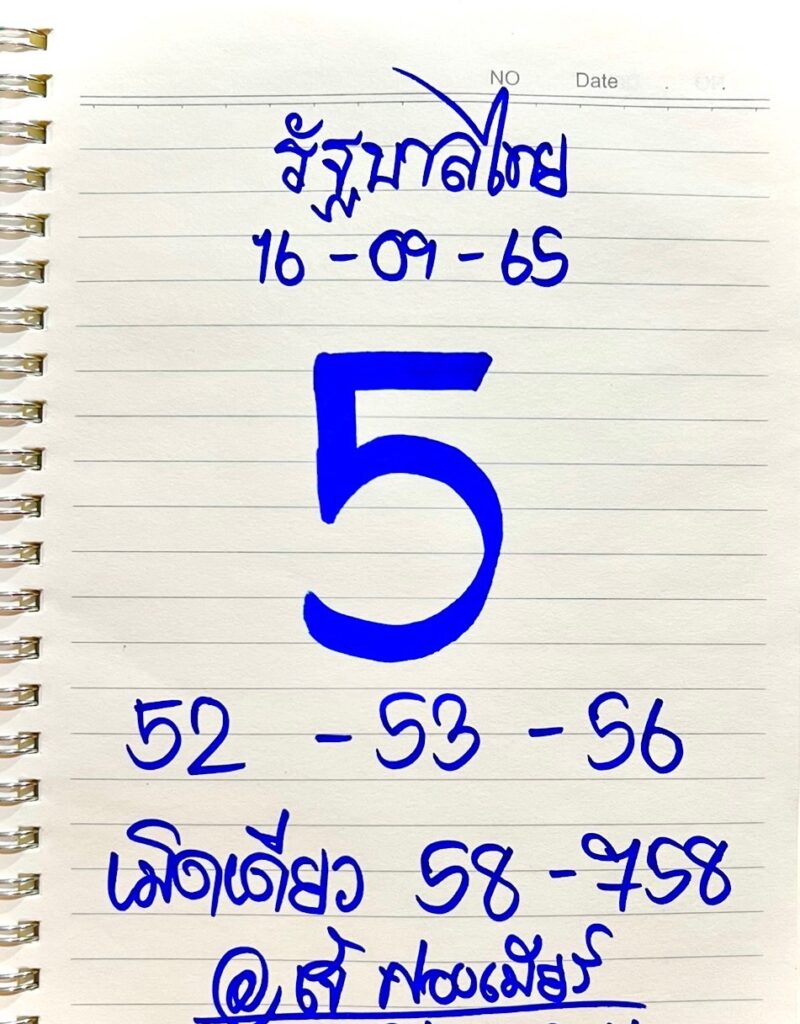 NO Date
รัฐบาลไทย
16 - 09 - 65
5
52 - 53 - 56
เม็ดเดียว 58 - 758
@เจ๊ ฟองเบียร์